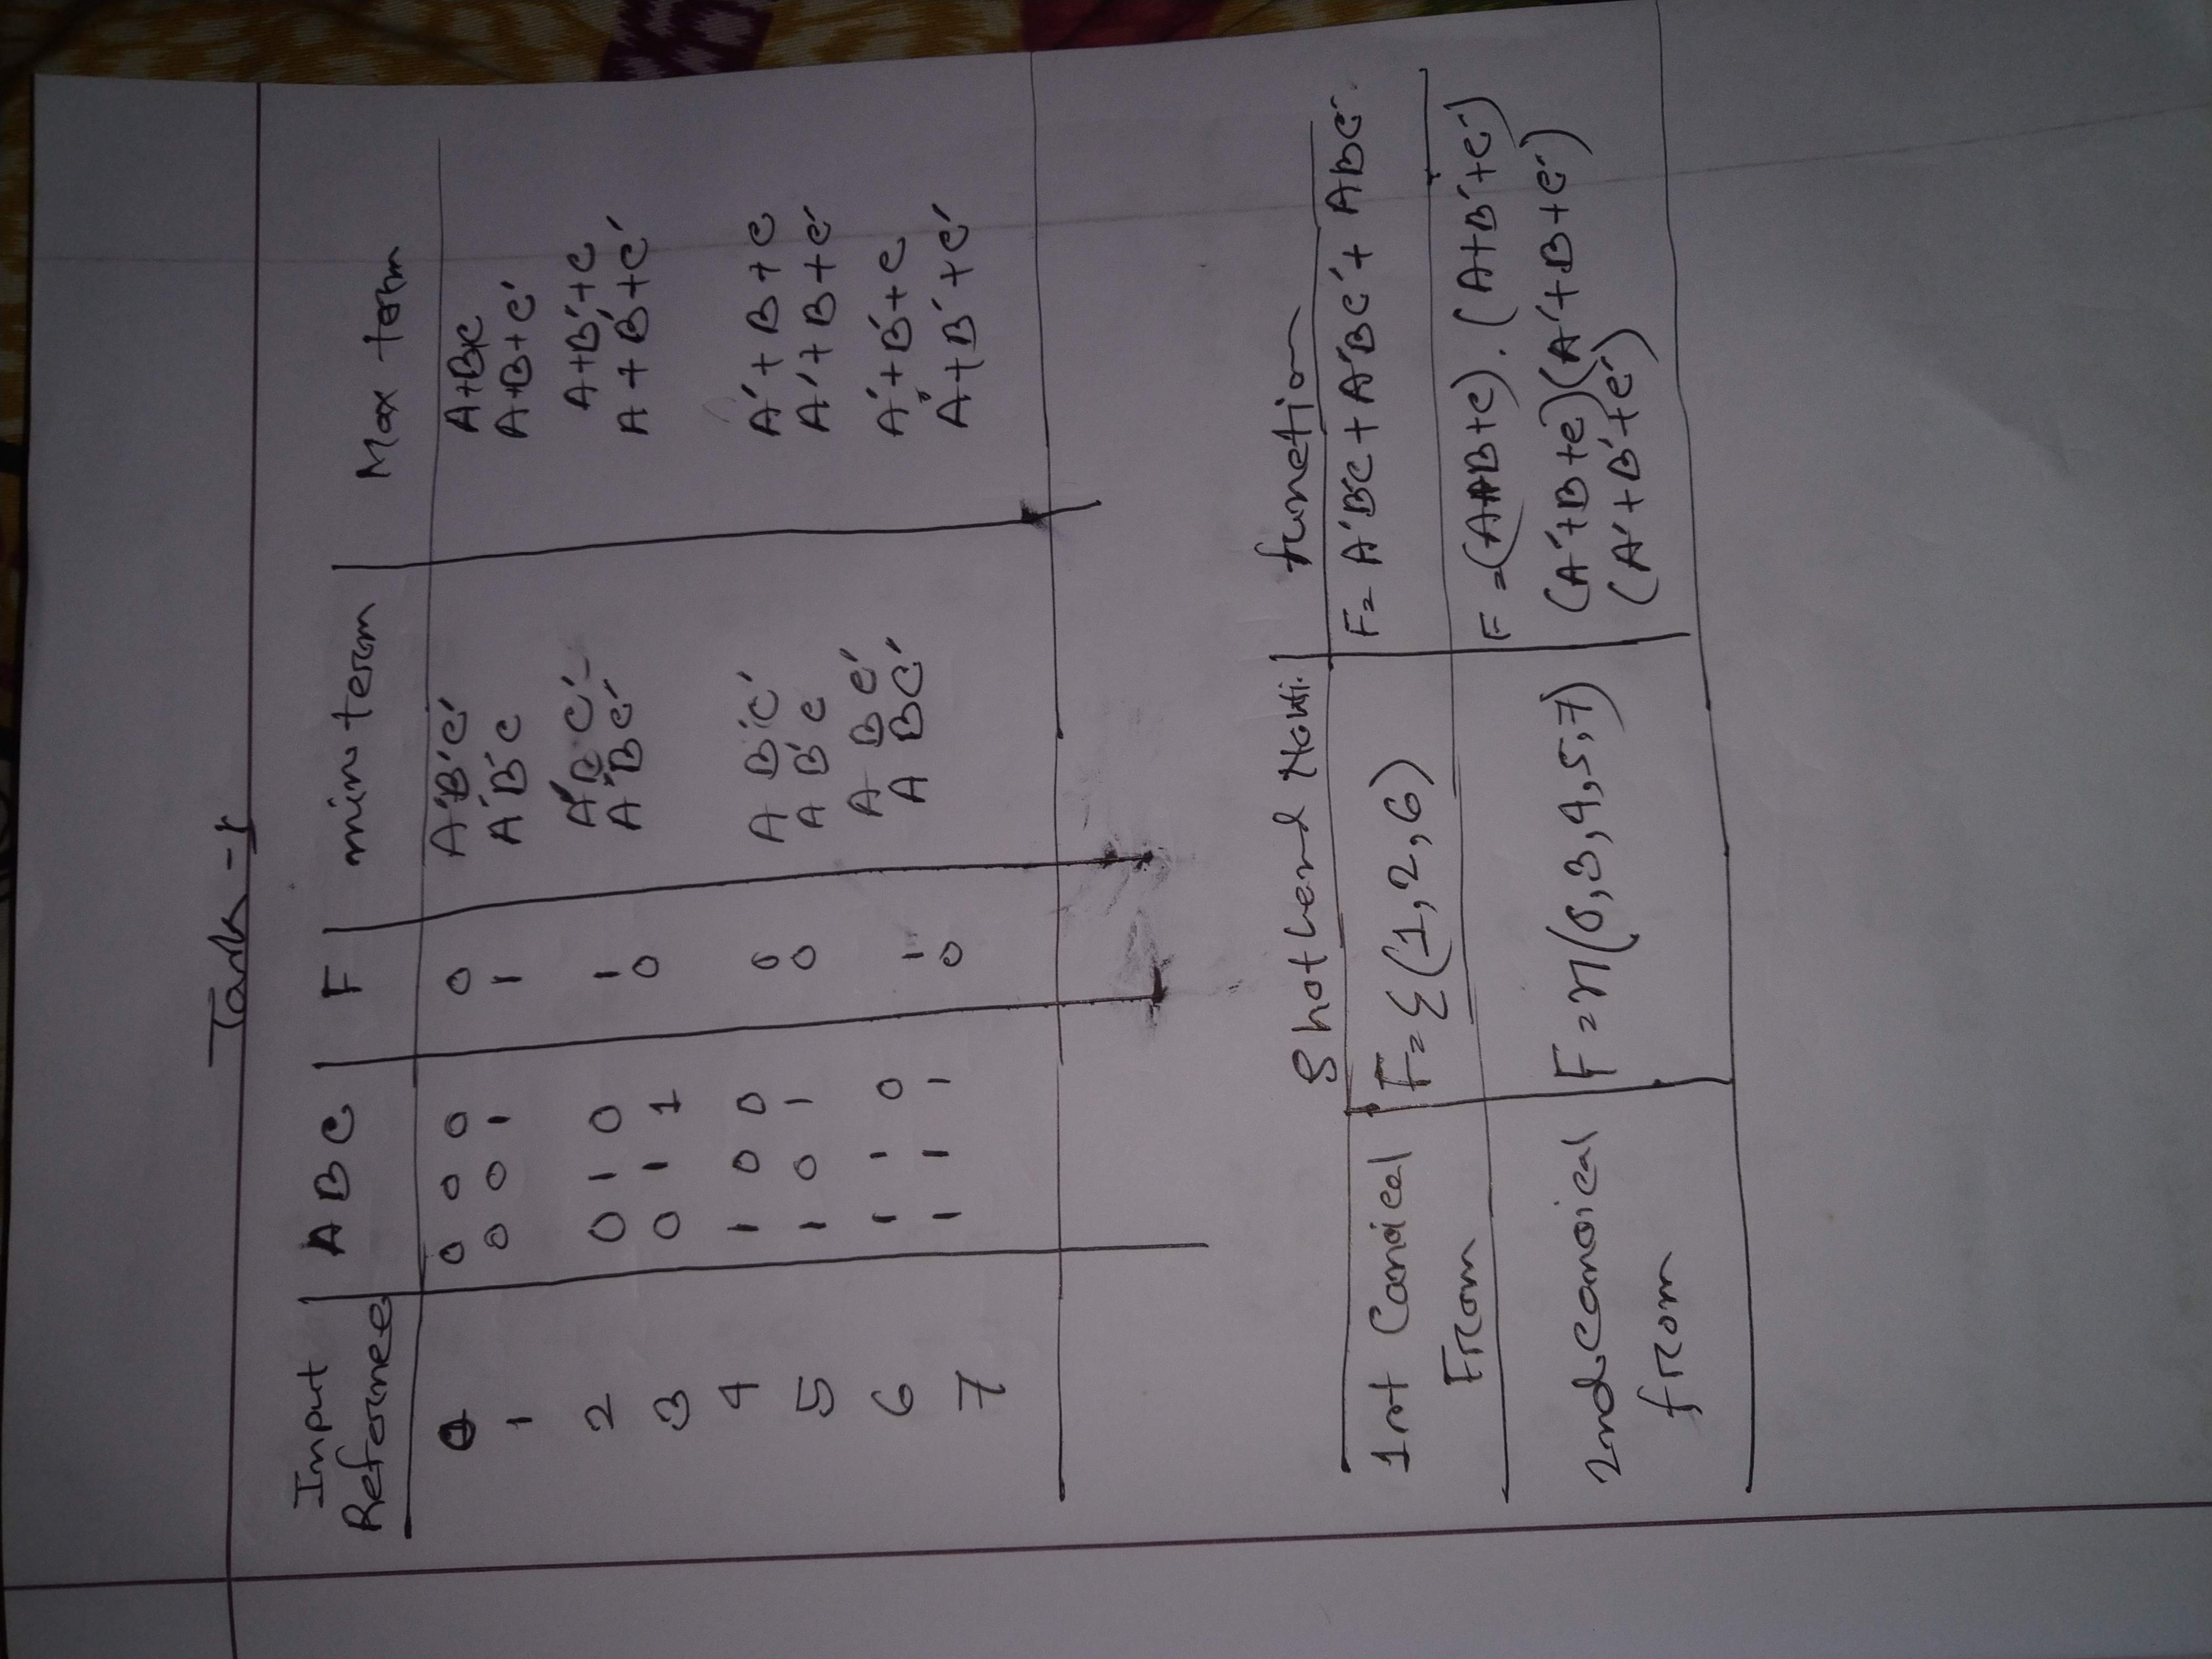 Task-1
Input Refernee | A B C | F | min term | Max term
0 | 0 0 0 | 0 | A'B'C' | A+B+C
1 | 0 0 1 | 1 | A'B'C | A+B+C'
2 | 0 1 0 | 1 | A'B C' | A+B'+C
3 | 0 1 1 | 0 | A'BC' | A+B'+C'
4 | 1 0 0 | 0 | A B'C' | A'+B+C
5 | 1 0 1 | 0 | A B'C | A'+B+C'
6 | 1 1 0 | 1 | A B C' | A'+B'+C
7 | 1 1 1 | 0 | A BC' | A'+B'+C'
Shothend | function
1st Canoical From | F=Σ(1,2,6) | F= A'B'C+A'BC'+ ABC'
2nd canoical from | F=π(0,3,4,5,7) | F=(A+B+C).(A+B'+C')
(A'+B+C)(A'+B+C')
(A'+B'+C')